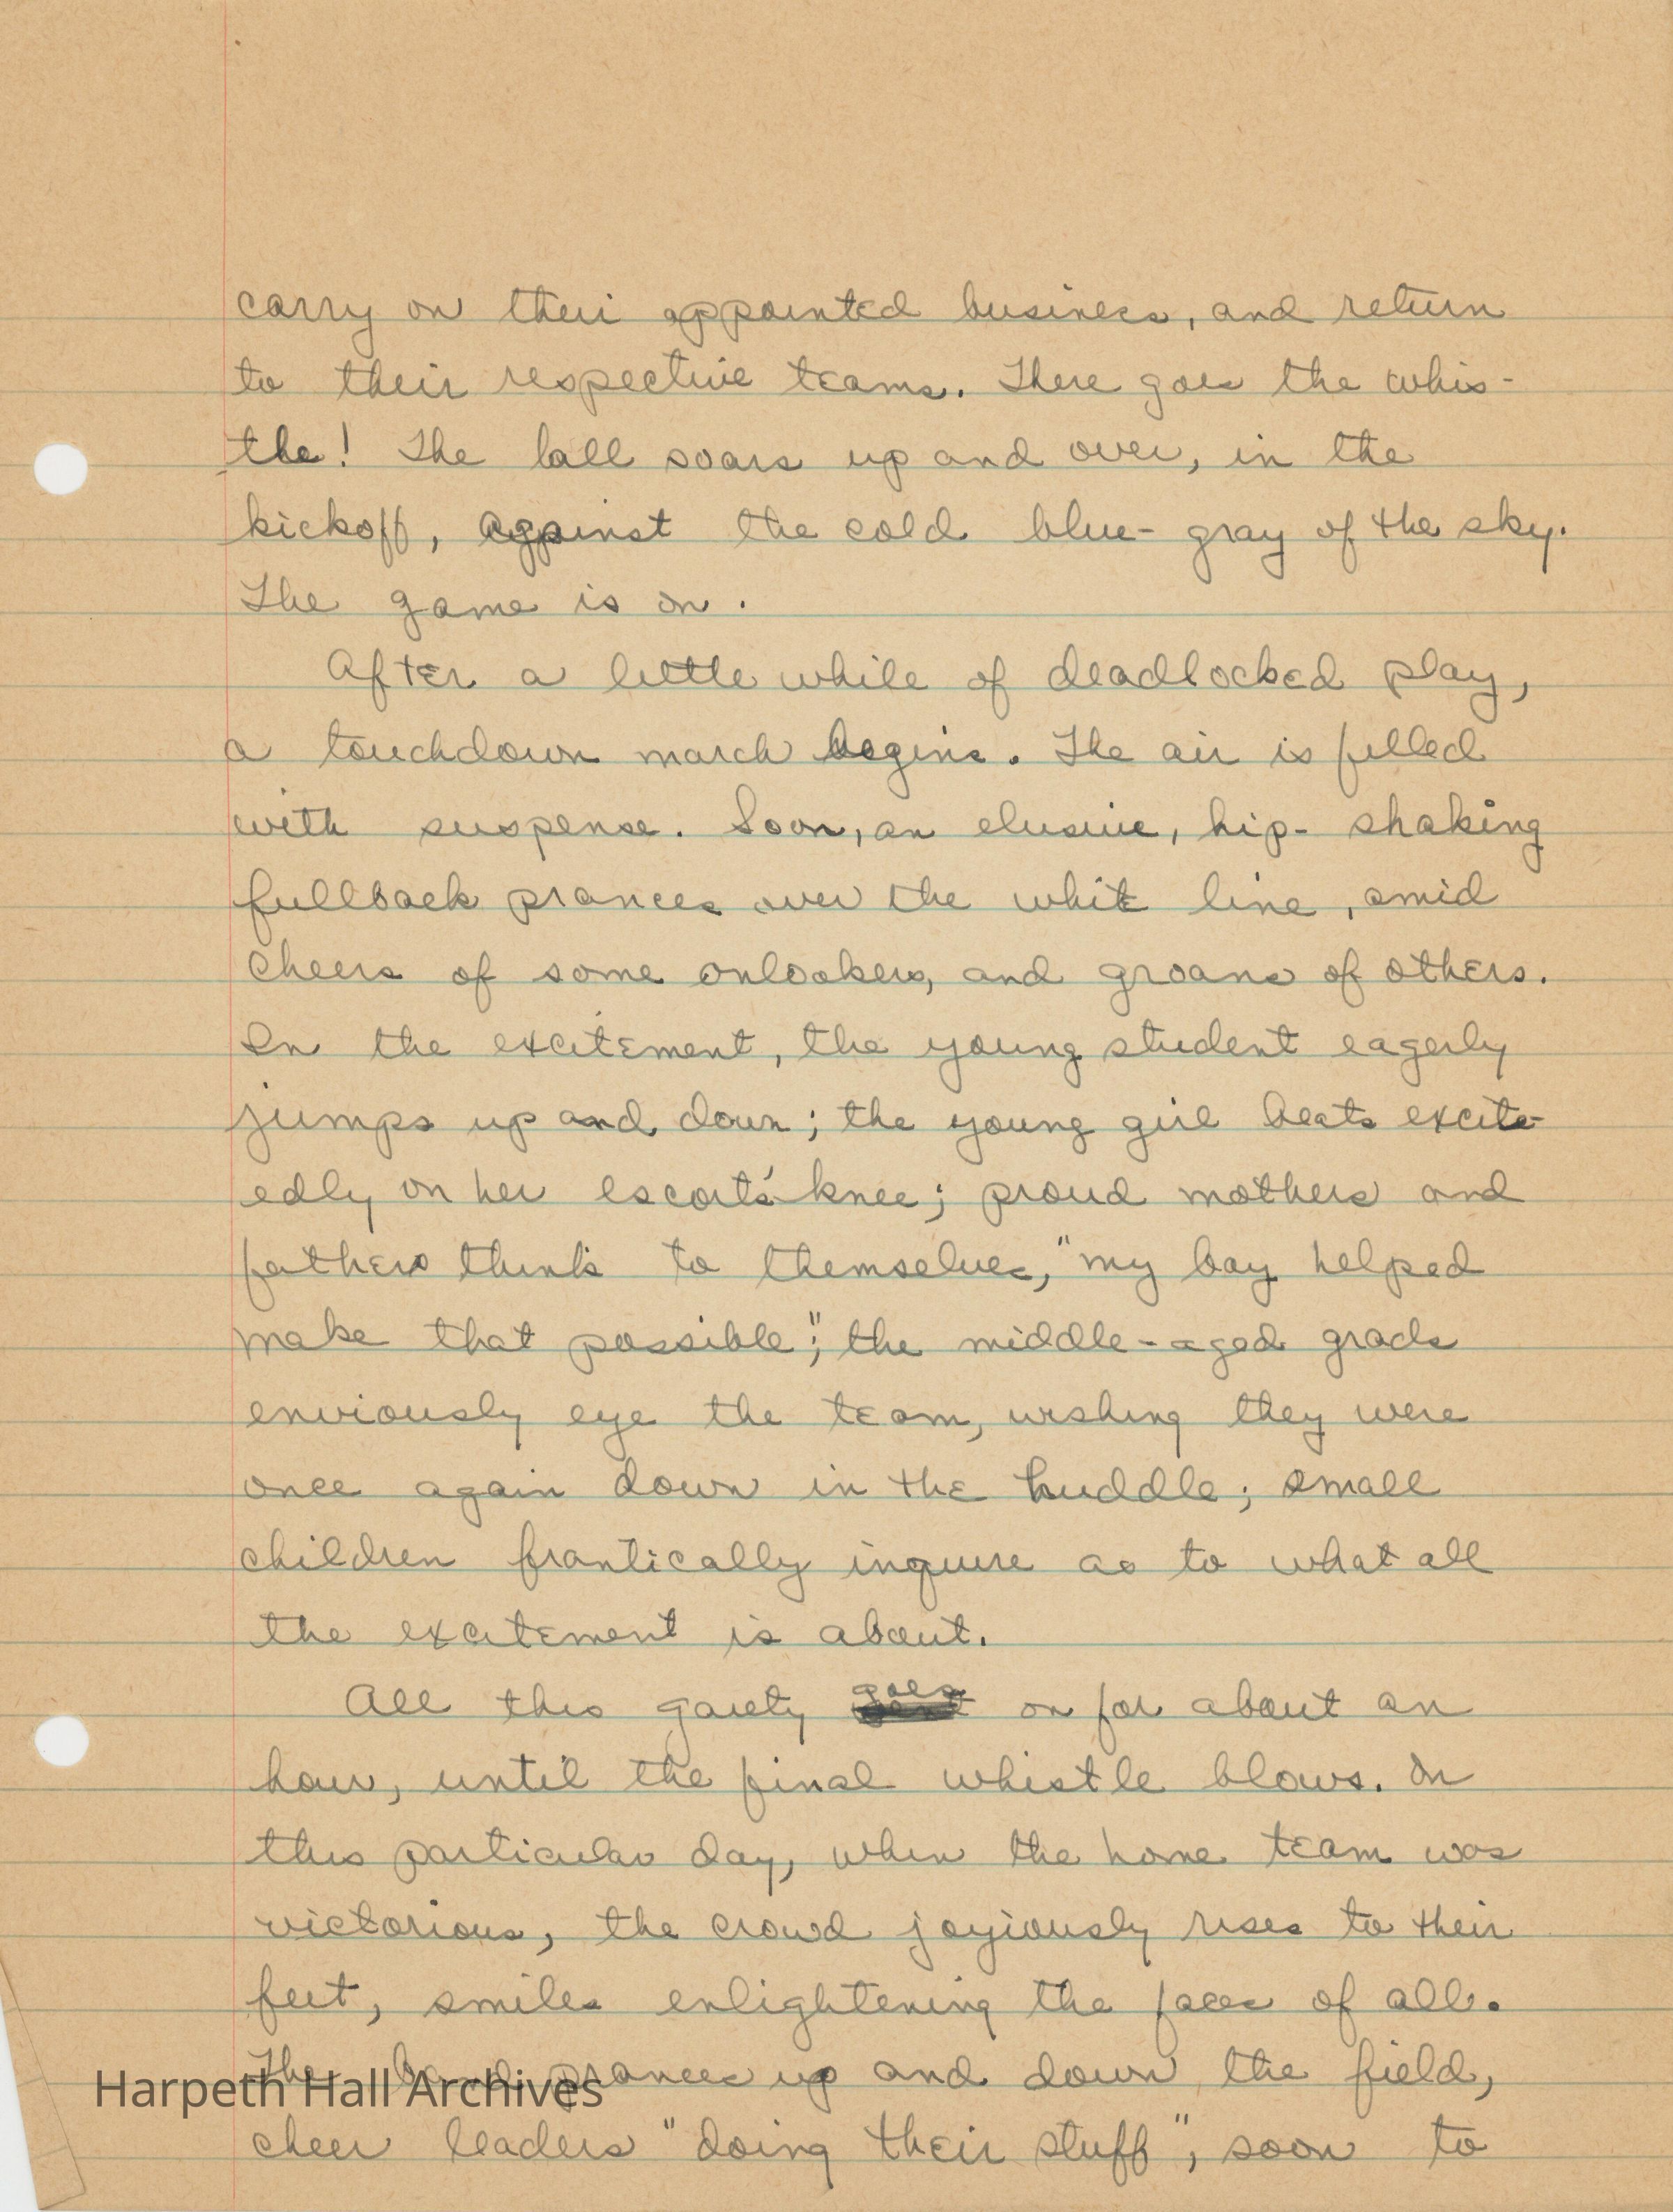 carry on their appointed business, and return
to their respective teams. There goes the whis-
tle! The ball soars up and over, in the
kickoff, against the cold blue-gray of the sky.
The game is on.
After a little while of deadlocked play,
a touchdown march begins. The air is filled
with suspense. Soon, an elusive, hip-shaking
fullback prances over the white line, amid
cheers of some onlookers, and groans of others.
In the excitement, the young student eagerly
jumps up and down; the young girl beats excite-
edly on her escorts' knee; proud mothers and
fathers think to themselves, "my boy helped
make that possible"; the middle-aged grads
enviously eye the team, wishing they were
once again down in the huddle; small
children frantically inquire as to what all
the excitement is about.
All this gaiety goes on for about an
hour, until the final whistle blows. On
this particular day, when the home team was
victorious, the crowd joyiously rises to their
feet, smiles enlightening the faces of all.
The band prances up and down the field,
Harpeth Hall Archives
cheer leaders "doing their stuff", soon to